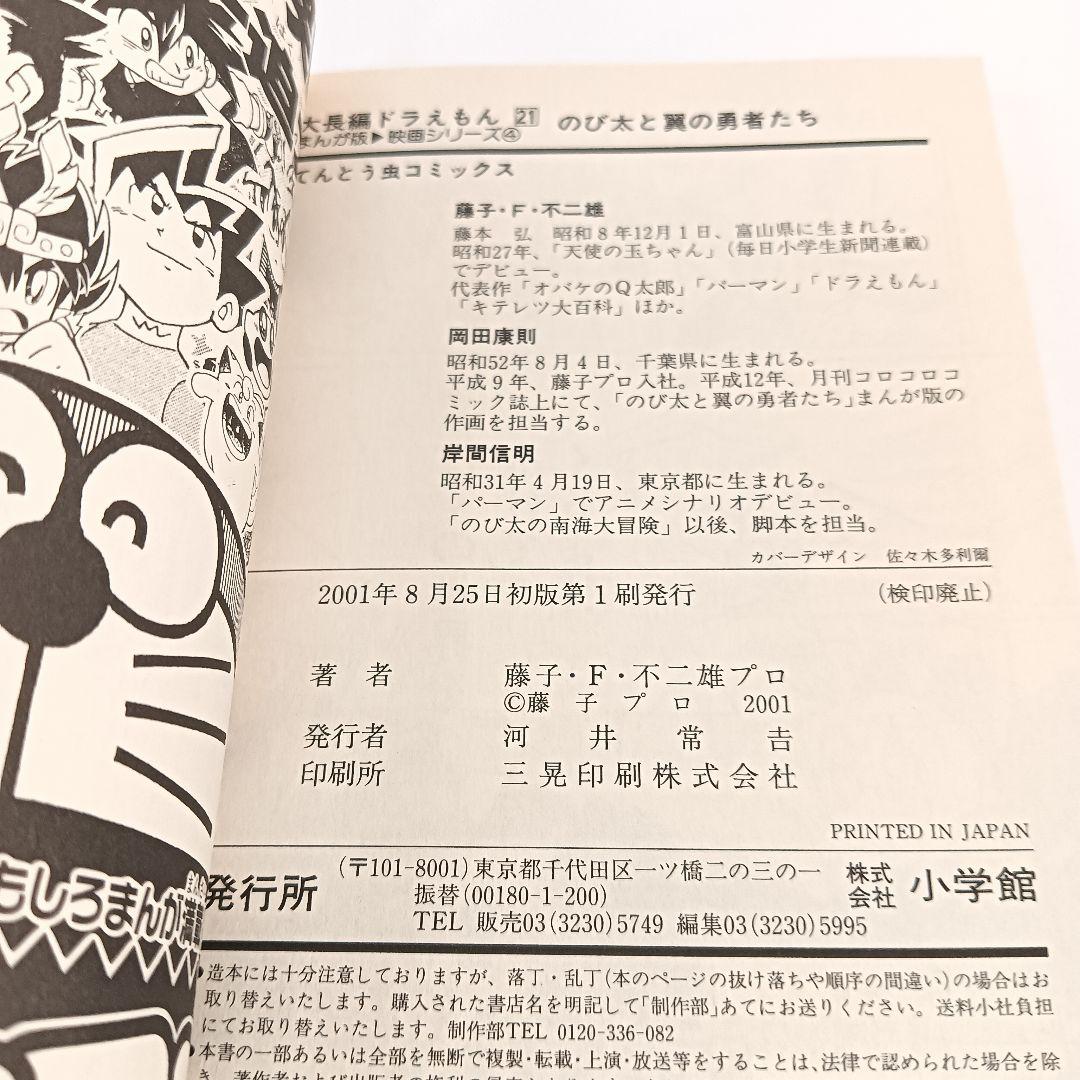 大長編ドラえもん 21 のび太と翼の勇者たち
まんが版▶映画シリーズ④
てんとう虫コミックス
藤子・F・不二雄
藤本 弘 昭和8年12月1日、富山県に生まれる。
昭和27年、「天使の玉ちゃん」(毎日小学生新聞連載)
でデビュー。
代表作「オバケのQ太郎」「パーマン」「ドラえもん」
「キテレツ大百科」ほか。
岡田康則
昭和52年8月4日、千葉県に生まれる。
平成9年、藤子プロ入社。平成12年、月刊コロコロコ
ミック誌上にて、「のび太と翼の勇者たち」まんが版の
作画を担当する。
岸間信明
昭和31年4月19日、東京都に生まれる。
「パーマン」でアニメシナリオデビュー。
「のび太の南海大冒険」以後、脚本を担当。
カバーデザイン 佐々木多利爾
2001年8月25日初版第1刷発行 (検印廃止)
著者 藤子・F・不二雄プロ
©藤子プロ 2001
発行者 河井常吉
印刷所 三晃印刷株式会社
PRINTED IN JAPAN
発行所 (〒101-8001)東京都千代田区一ツ橋二の三の一 株式会社 小学館
振替(00180-1-200)
TEL 販売03(3230)5749 編集03(3230)5995
●造本には十分注意しておりますが、落丁・乱丁(本のページの抜け落ちや順序の間違い)の場合はお
取り替えいたします。購入された書店名を明記して「制作部」あてにお送りください。送料小社負担
にてお取り替えいたします。制作部TEL 0120-336-082
●本書の一部あるいは全部を無断で複製・転載・上演・放送等をすることは、法律で認められた場合を除
もしろまんが